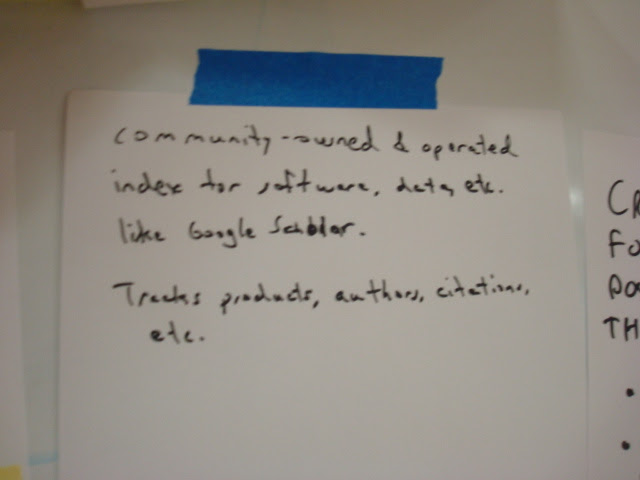 Community-owned & operated
index for software, data, etc.
like Google Scholar.
Tracks products, authors, citations,
etc.
CR
FO
TH